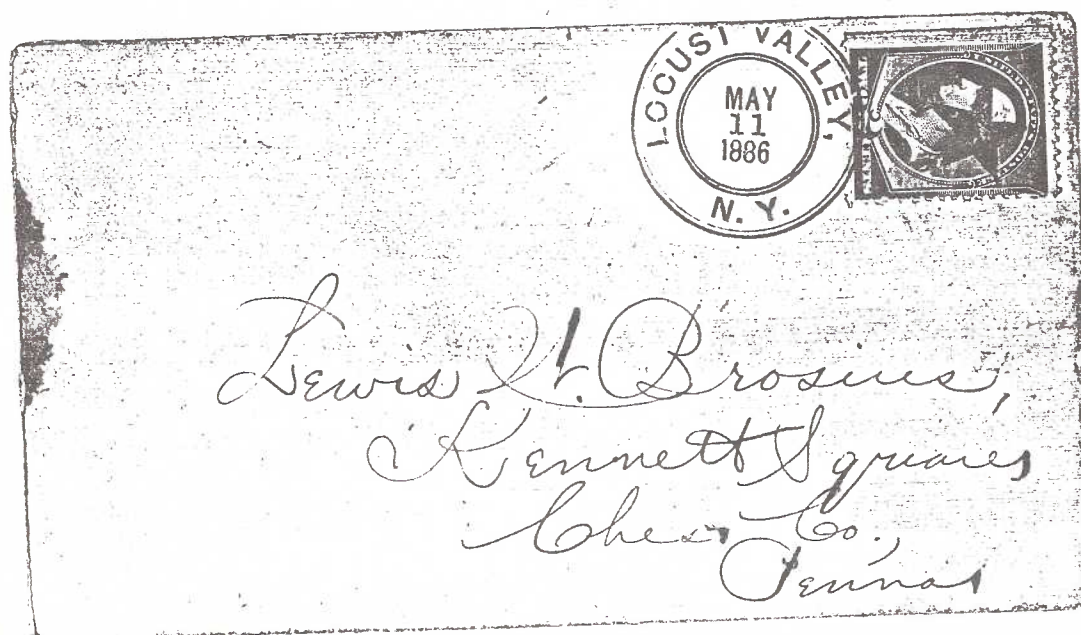 LOCUST VALLEY,
MAY
11
1886
N. Y.
Lewis W. Brosius,
Kennett Square
Ches. Co.,
Penna